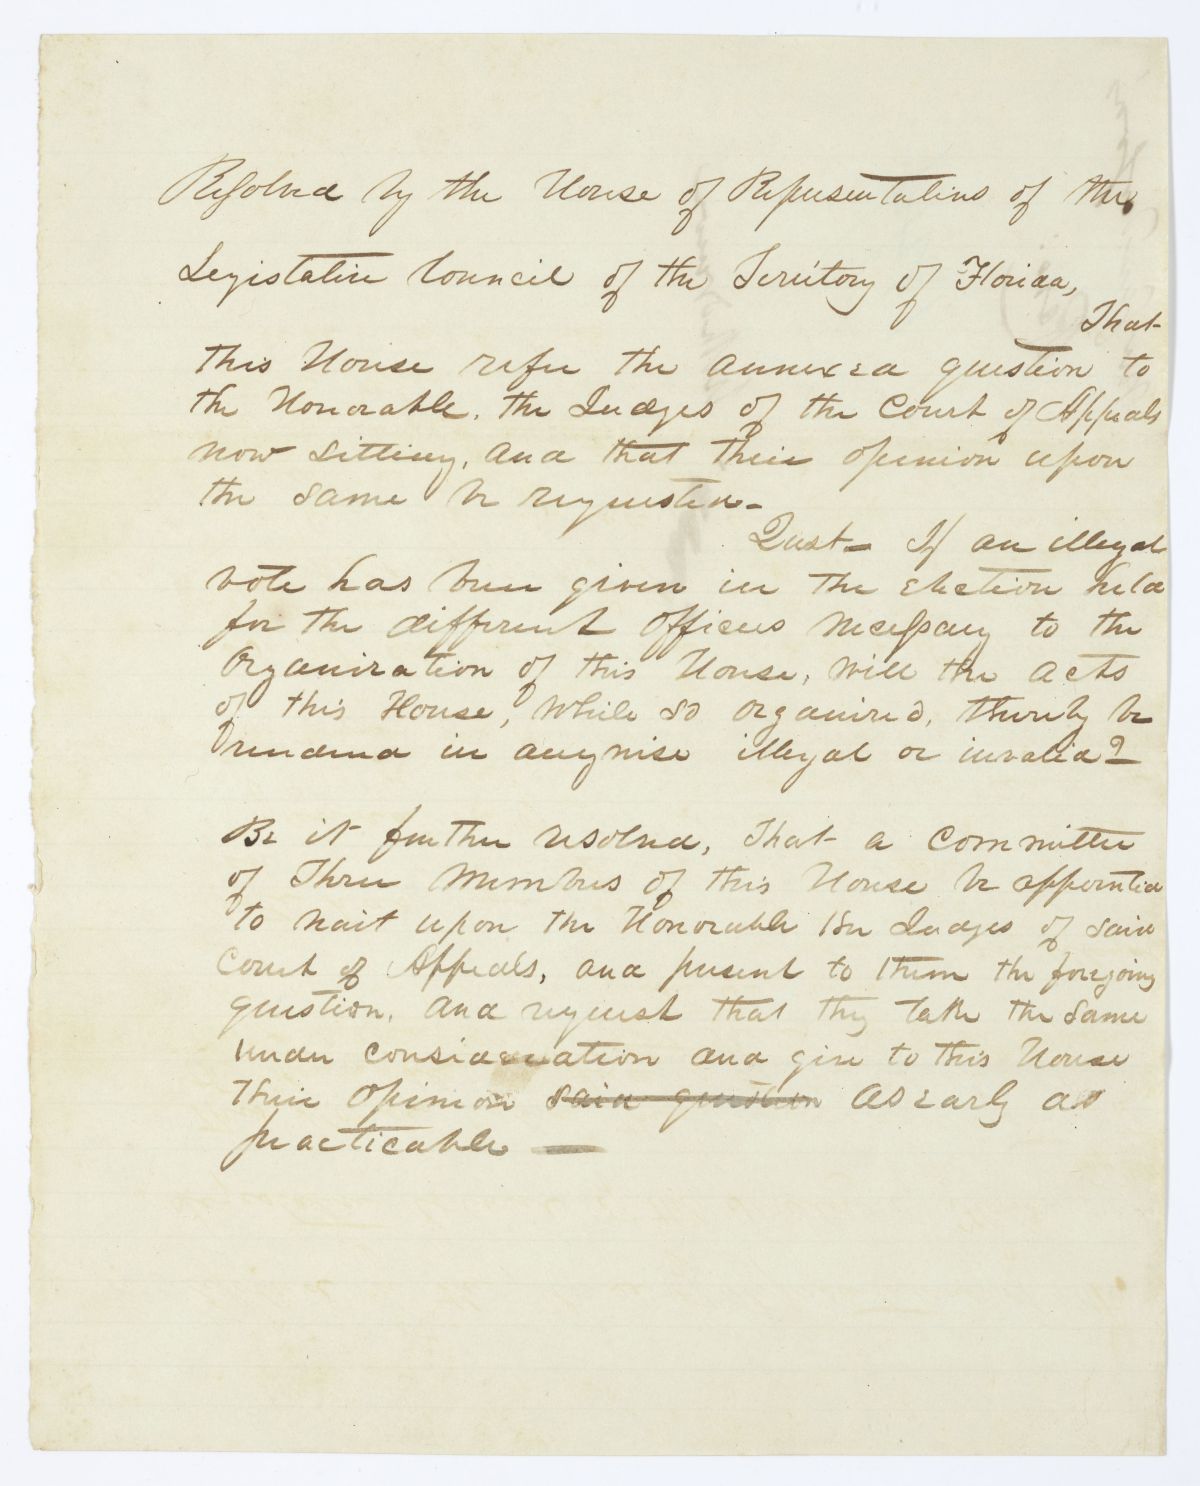 Resolved by the House of Representatives of the
Legislative Council of the Territory of Florida,
That
this House refer the annexed question to
the Honorable, the Judges of the Court of Appeals
now sitting, and that their opinion upon
the same be requested-
Quest- If an illegal
vote has been given in the election held
for the different officers necessary to the
Organization of this House, will the acts
of this House, while so organized, thereby be
rendered in anywise illegal or invalid?
Be it further resolved, That a committee
of Three Members of this House be appointed
to wait upon the Honorable the Judges of said
Court of Appeals, and present to them the foregoing
question, and request that they take the same
under consideration and give to this House
their opinion said question as early as
practicable —